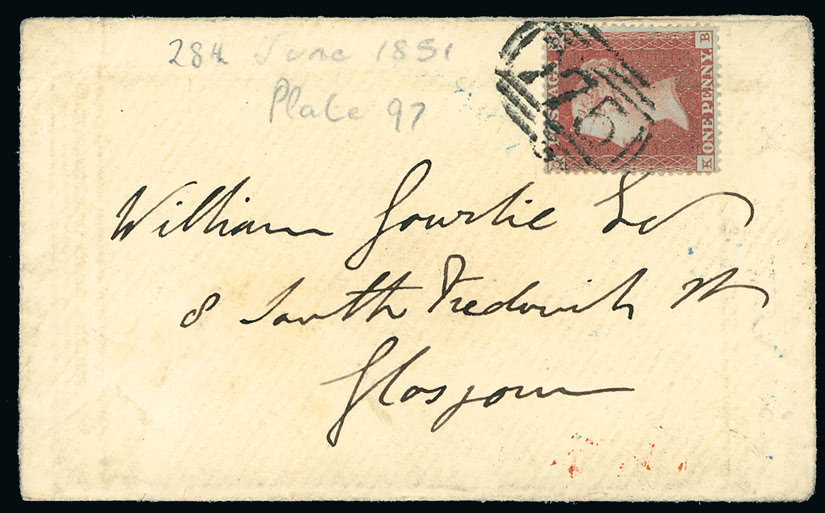 28th June 1851
Plate 97
175
POSTAGE
ONE PENNY
B
K
William Gourlie Esq
8 South Frederick St
Glasgow